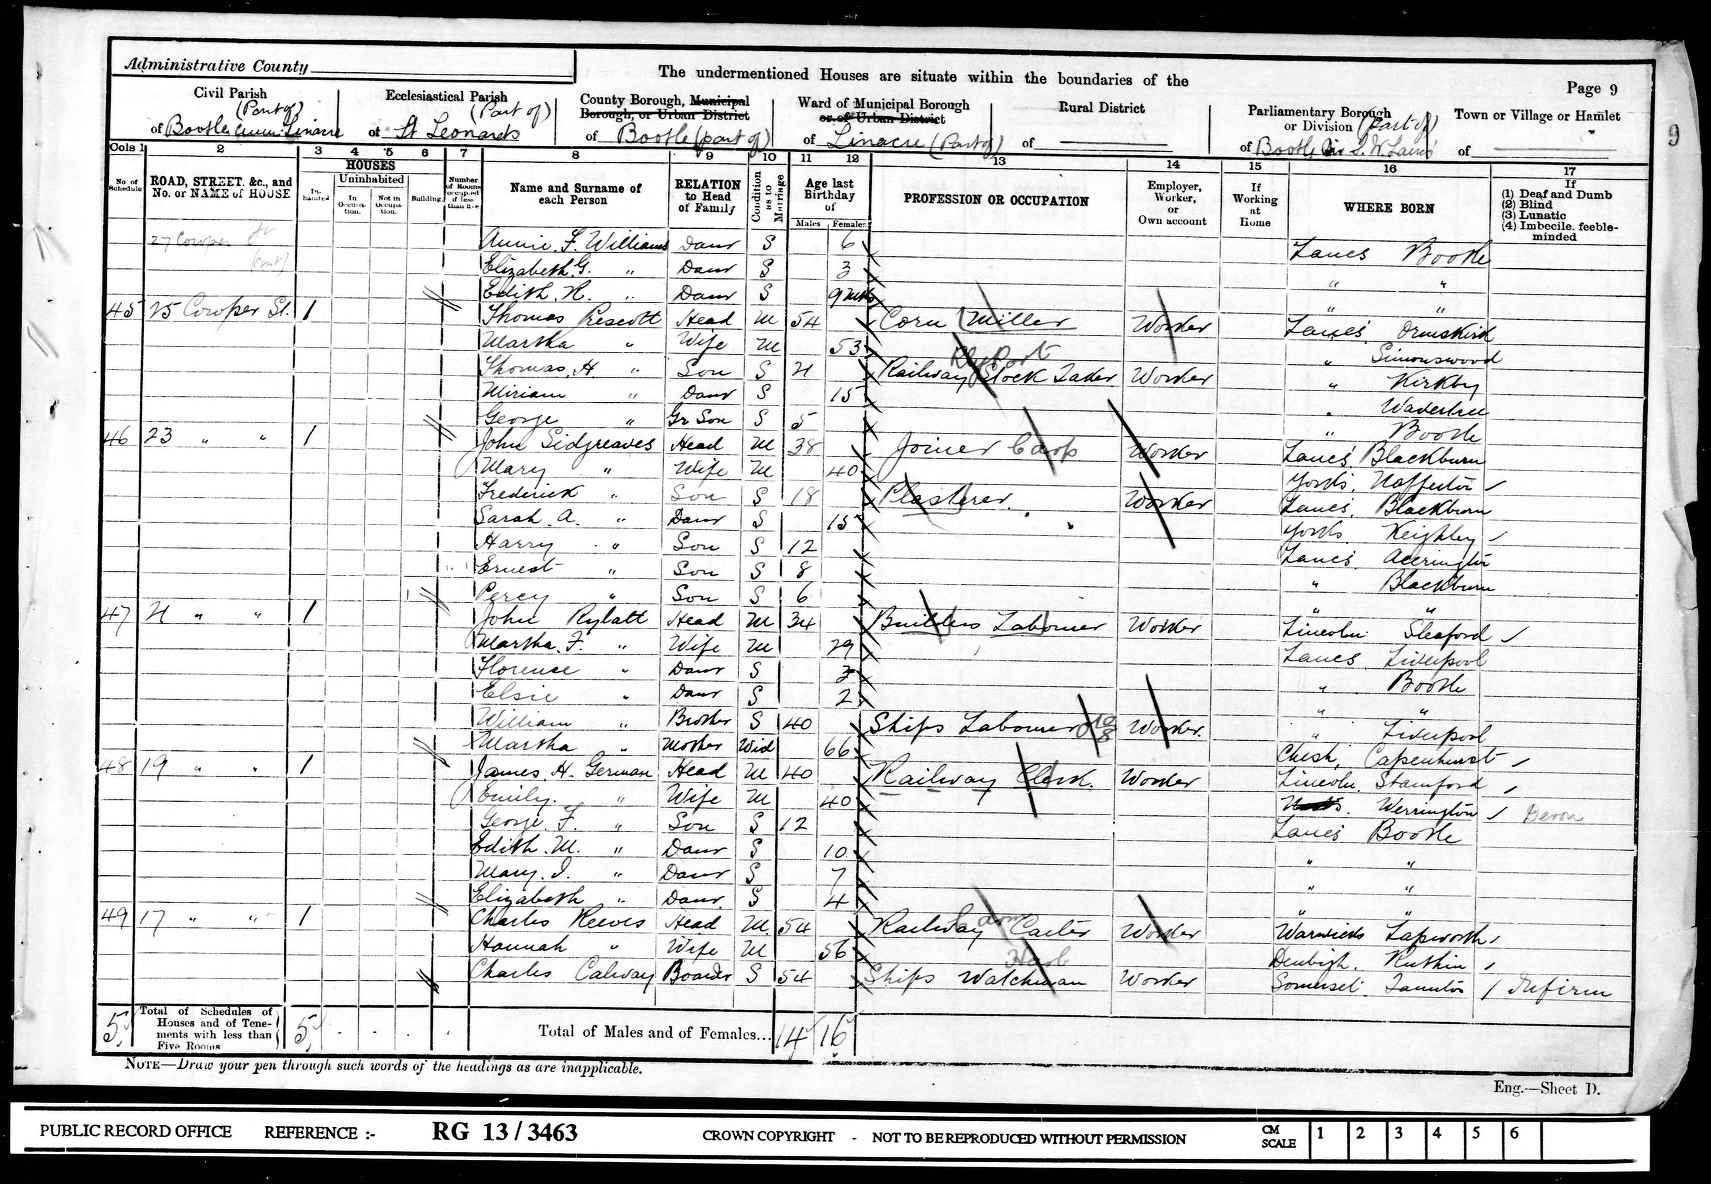 Administrative County
The undermentioned Houses are situate within the boundaries of the
Page 9
Civil Parish (Part of) of Bootle cum Linacre
Ecclesiastical Parish (Part of) of St Leonards
County Borough, Municipal Borough, or Urban District of Bootle (part of)
Ward of Municipal Borough or of Urban District of Linacre (Part of)
Rural District of
Parliamentary Borough or Division (Part of) of Bootle Div S.W. Lancs
Town or Village or Hamlet of
9
Cols 1 2 3 4 5 6 7 8 9 10 11 12 13 14 15 16 17
No. of Schedule
ROAD, STREET, &c., and No. or NAME of HOUSE
HOUSES
Inhabited
Uninhabited
In Occupation.
Not in Occupation.
Building
Number of Rooms occupied if less than five
Name and Surname of each Person
RELATION to Head of Family
Condition as to Marriage
Age last Birthday of
Males Females
PROFESSION OR OCCUPATION
Employer, Worker, or Own account
If Working at Home
WHERE BORN
If (1) Deaf and Dumb (2) Blind (3) Lunatic (4) Imbecile, feeble-minded
27 Cowper St (cont) Annie F. Williams Daur S 6 Lancs Bootle
Elizabeth G. " Daur S 3 " "
Edith H. " Daur S 9 mths " "
45 25 Cowper St. 1 Thomas Prescott Head M 54 Corn Miller Worker Lancs Ormskirk
Martha " Wife M 53 " Simonswood
Thomas, H " Son S 21 Railway Stock Taker Rly Port Worker " Kirkby
Miriam " Daur S 15 " Wavertree
George " Gr Son S 5 " Bootle
46 23 " " 1 John Sidgreaves Head M 38 Joiner Carp Worker Lancs Blackburn
Mary " Wife M 40 Yorks Nafferton
Frederick " Son S 18 Plasterer. Worker Lancs. Blackburn
Sarah. A. " Daur S 15 Yorks Keighley
Harry " Son S 12 Lancs Accrington
Ernest " Son S 8 " Blackburn
Percy " Son S 6 " "
47 21 " " 1 John Rylatt Head M 34 Builders Labourer Worker Lincoln Sleaford
Martha. F. " Wife M 29 Lancs Liverpool
Florence " Daur S 3 " Bootle
Elsie " Daur S 2 " "
William " Brother S 40 Ships Labourer Worker. " Liverpool
Martha " Mother Wid 66 Chesh, Capenhurst
48 19 " " 1 James. H. German Head M 40 Railway Clerk. Worker Lincoln. Stamford
Emily. " Wife M 40 Werrington Devon
George. F. " Son S 12 Lancs Bootle
Edith. M. " Daur S 10 " "
Mary. I. " Daur S 7 " "
Elizabeth " Daur. S 4 " "
49 17 " " 1 Charles Reeves Head M. 54 Railway Carter Worker Warwicks Lapworth
Hannah " Wife M 56 Denbigh. Ruthin
Charles Calway Boarder S 54 Ships Watchman Worker Somerset. Taunton Infirm
5 Total of Schedules of Houses and of Tenements with less than Five Rooms 5
Total of Males and of Females... 14 16
NOTE—Draw your pen through such words of the headings as are inapplicable.
Eng.—Sheet D.
PUBLIC RECORD OFFICE REFERENCE :- RG 13 / 3463 CROWN COPYRIGHT - NOT TO BE REPRODUCED WITHOUT PERMISSION CM SCALE 1 2 3 4 5 6